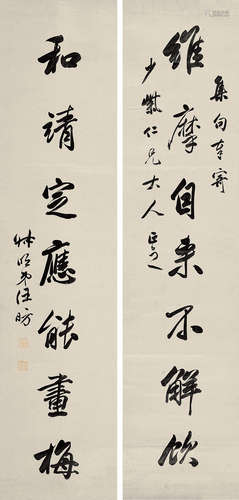 維摩自來不解飲
集句奉寄
少㦤仁兄大人正之
和靖定應能畫梅
弟汪昉